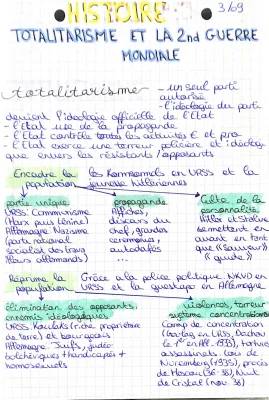 HISTOIRE
3/69
TOTALITARISME ET LA 2nd GUERRE
MONDIALE
totalitarisme - un seul parti
autorisé
- l'idéologie du parti
devient l'idéologie officielle de l'Etat
- l'Etat use de la propagande
- l'Etat contrôle toutes les activités € et pro
- l'Etat exerce une terreur policière et idéolog
que envers les résistants / opposants
Encadre la population
les Komsomols en URSS et la
jeunesse hitlérienne
partie unique
URSS Communisme
(Marx puis Lénine)
Allemagne Nazisme
(parti national
socialist des trav
ileurs allemands)
propagande
Affiches,
discours au
chef, grandes
cérémonies,
autodafés
...
Culte de la
personnalité
Hitler et Staline
se mettent en
avant en tant
que "Sauveur"
"guide"
Réprime la population
Grâce à la police politique NKVD en
URSS et la guestapo en Allemagne
élimination des opposants,
ennemis idéologiques
URSS Koulaks (riche propriétaire
de terre) et bourgeois
Allemagne Juifs, judéo-
bolchéviques + handicapés +
homosexuels
violences, terreur
système concentrationn
Camp de concentration
(goulag en URSS, Dachau
le 1er en All. 1933), torture
assassinats. Lois de
Nuremberg (1935), procès
de Moscou (36-38), Nuit
de Cristal (nov. 38)